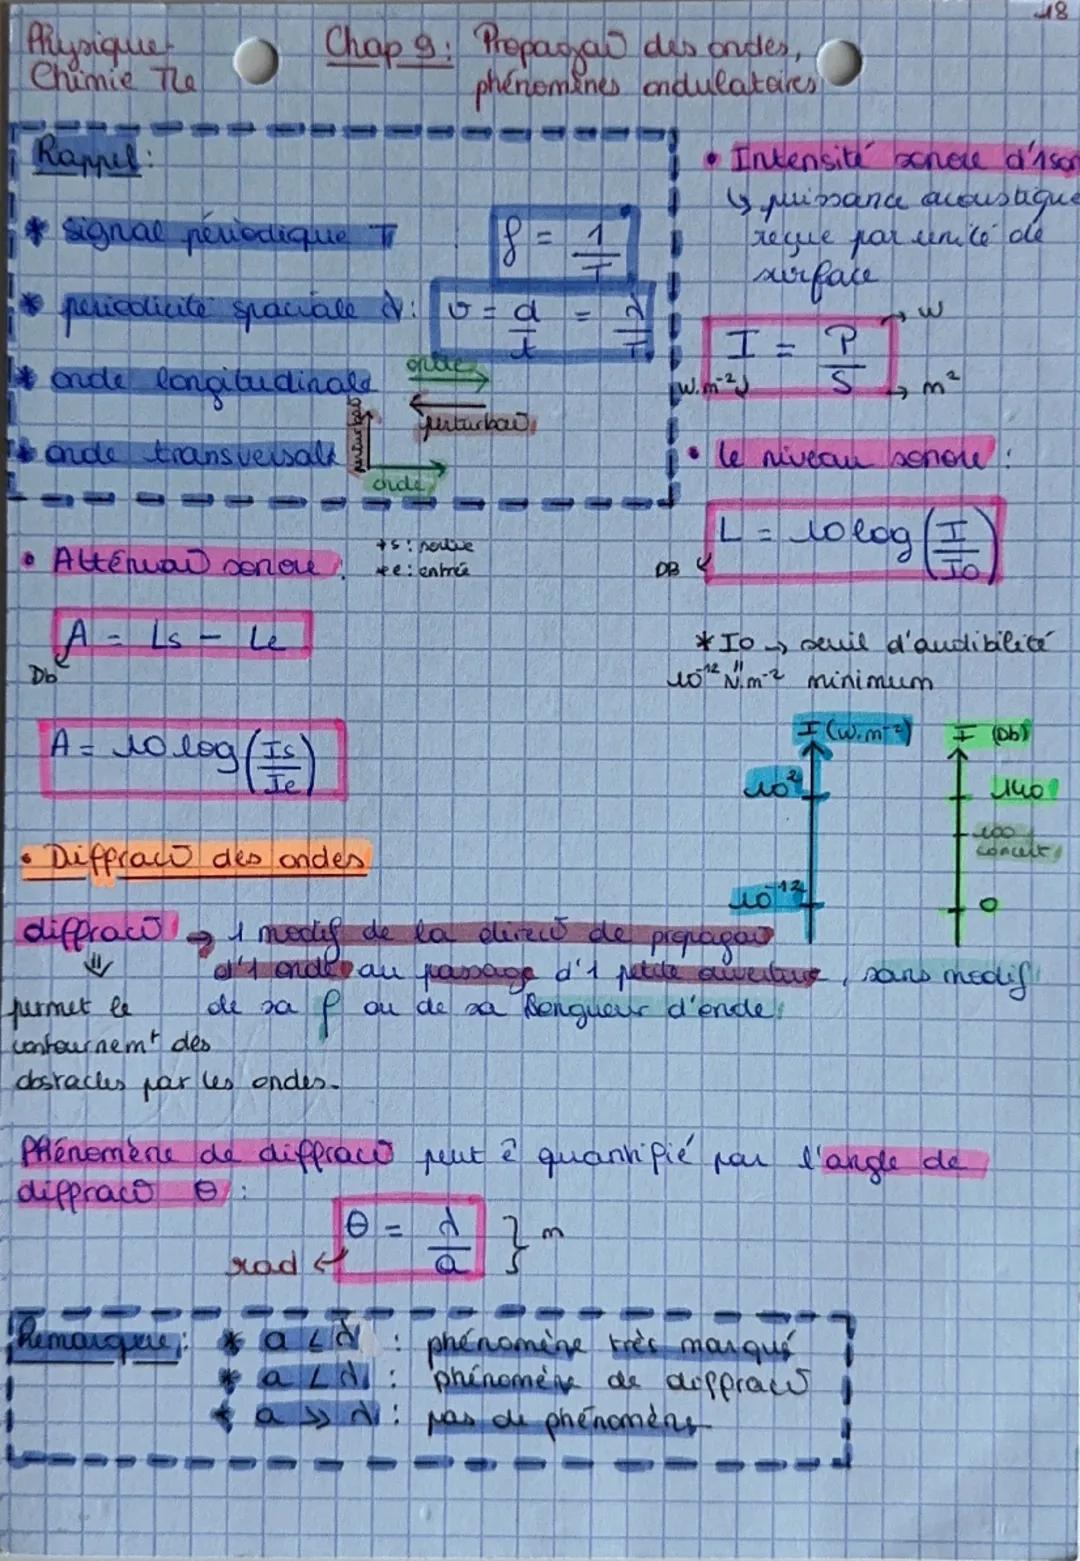 18
Physique
Chimie Tle
Chap 9: Propagaō des ondes,
phénomènes ondulatoires
Rappel:
* signal périodique T
f = 1/T
* periodicité spaciale λ:
v = d/t = λ/T
* onde longitudinale
onde
perturbaō
* onde transversale
perturbaō
onde
• Intensité sonore d'1 son
↳ puissance acoustique
reçue par unité de
surface
I = P/S
W
W.m⁻²
m²
• le niveau sonore :
L = 10 log (I/Io)
DB
* Io → seuil d'audibilité
10⁻¹² W.m⁻² minimum
I (W.m⁻²)
10²
10⁻¹²
I (Db)
140
100
concert
0
• Atténuaō sonore :
*s : sortie
*e : entrée
A = Ls - Le
Db
A = 10 log (Is/Ie)
• Diffracō des ondes
diffracō → 1 modif de la direcō de propagaō
d'1 onde au passage d'1 petite ouverture, sans modif
de sa f ou de sa longueur d'onde.
⇓
permet le
contournemᵗ des
obstacles par les ondes.
Phénomène de diffracō peut ê quantifié par l'angle de
diffracō θ :
θ = λ/a } m
rad
Remarque : * a < λ : phénomène très marqué
* a < λ : phénomène de diffracō
* a >> λ : pas de phénomène